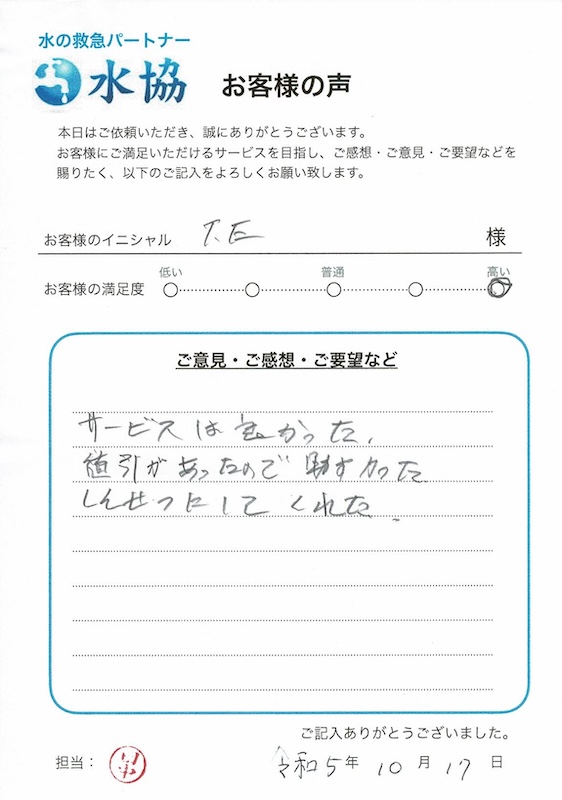 水の救急パートナー
水協 お客様の声
本日はご依頼いただき、誠にありがとうございます。
お客様にご満足いただけるサービスを目指し、ご感想・ご意見・ご要望などを
賜りたく、以下のご記入をよろしくお願い致します。
お客様のイニシャル T.E 様
低い 普通 高い
お客様の満足度
ご意見・ご感想・ご要望など
サービスは良かった、
値引があったので助すかった
しんせつにしてくれた。
ご記入ありがとうございました。
担当： 令和5年 10月 17日